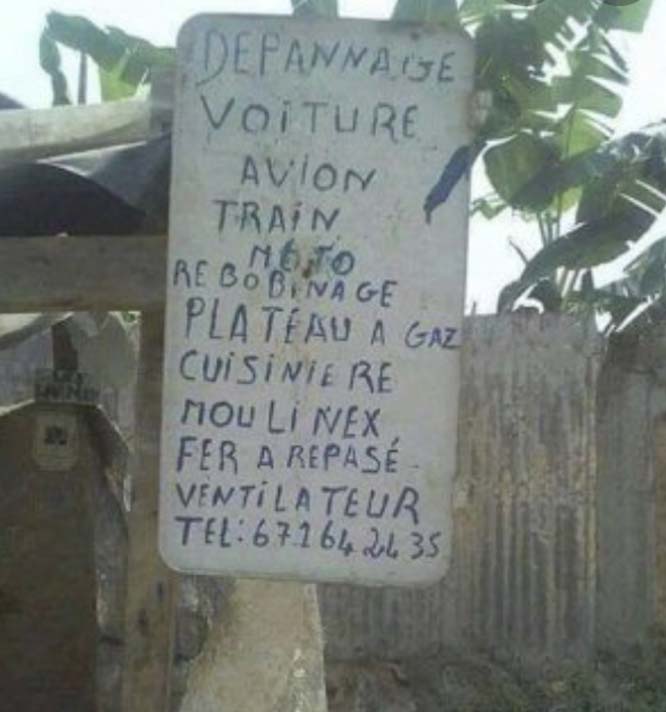 DEPANNAGE
VOITURE
AVION
TRAIN
MOTO
REBOBINAGE
PLATEAU A GAZ
CUISINIERE
MOULINEX
FER A REPASÉ
VENTILATEUR
TEL: 671642435